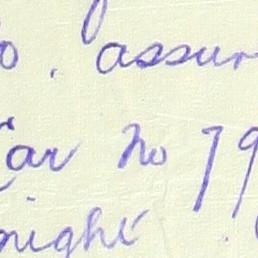 o. assur
Car No 79
night